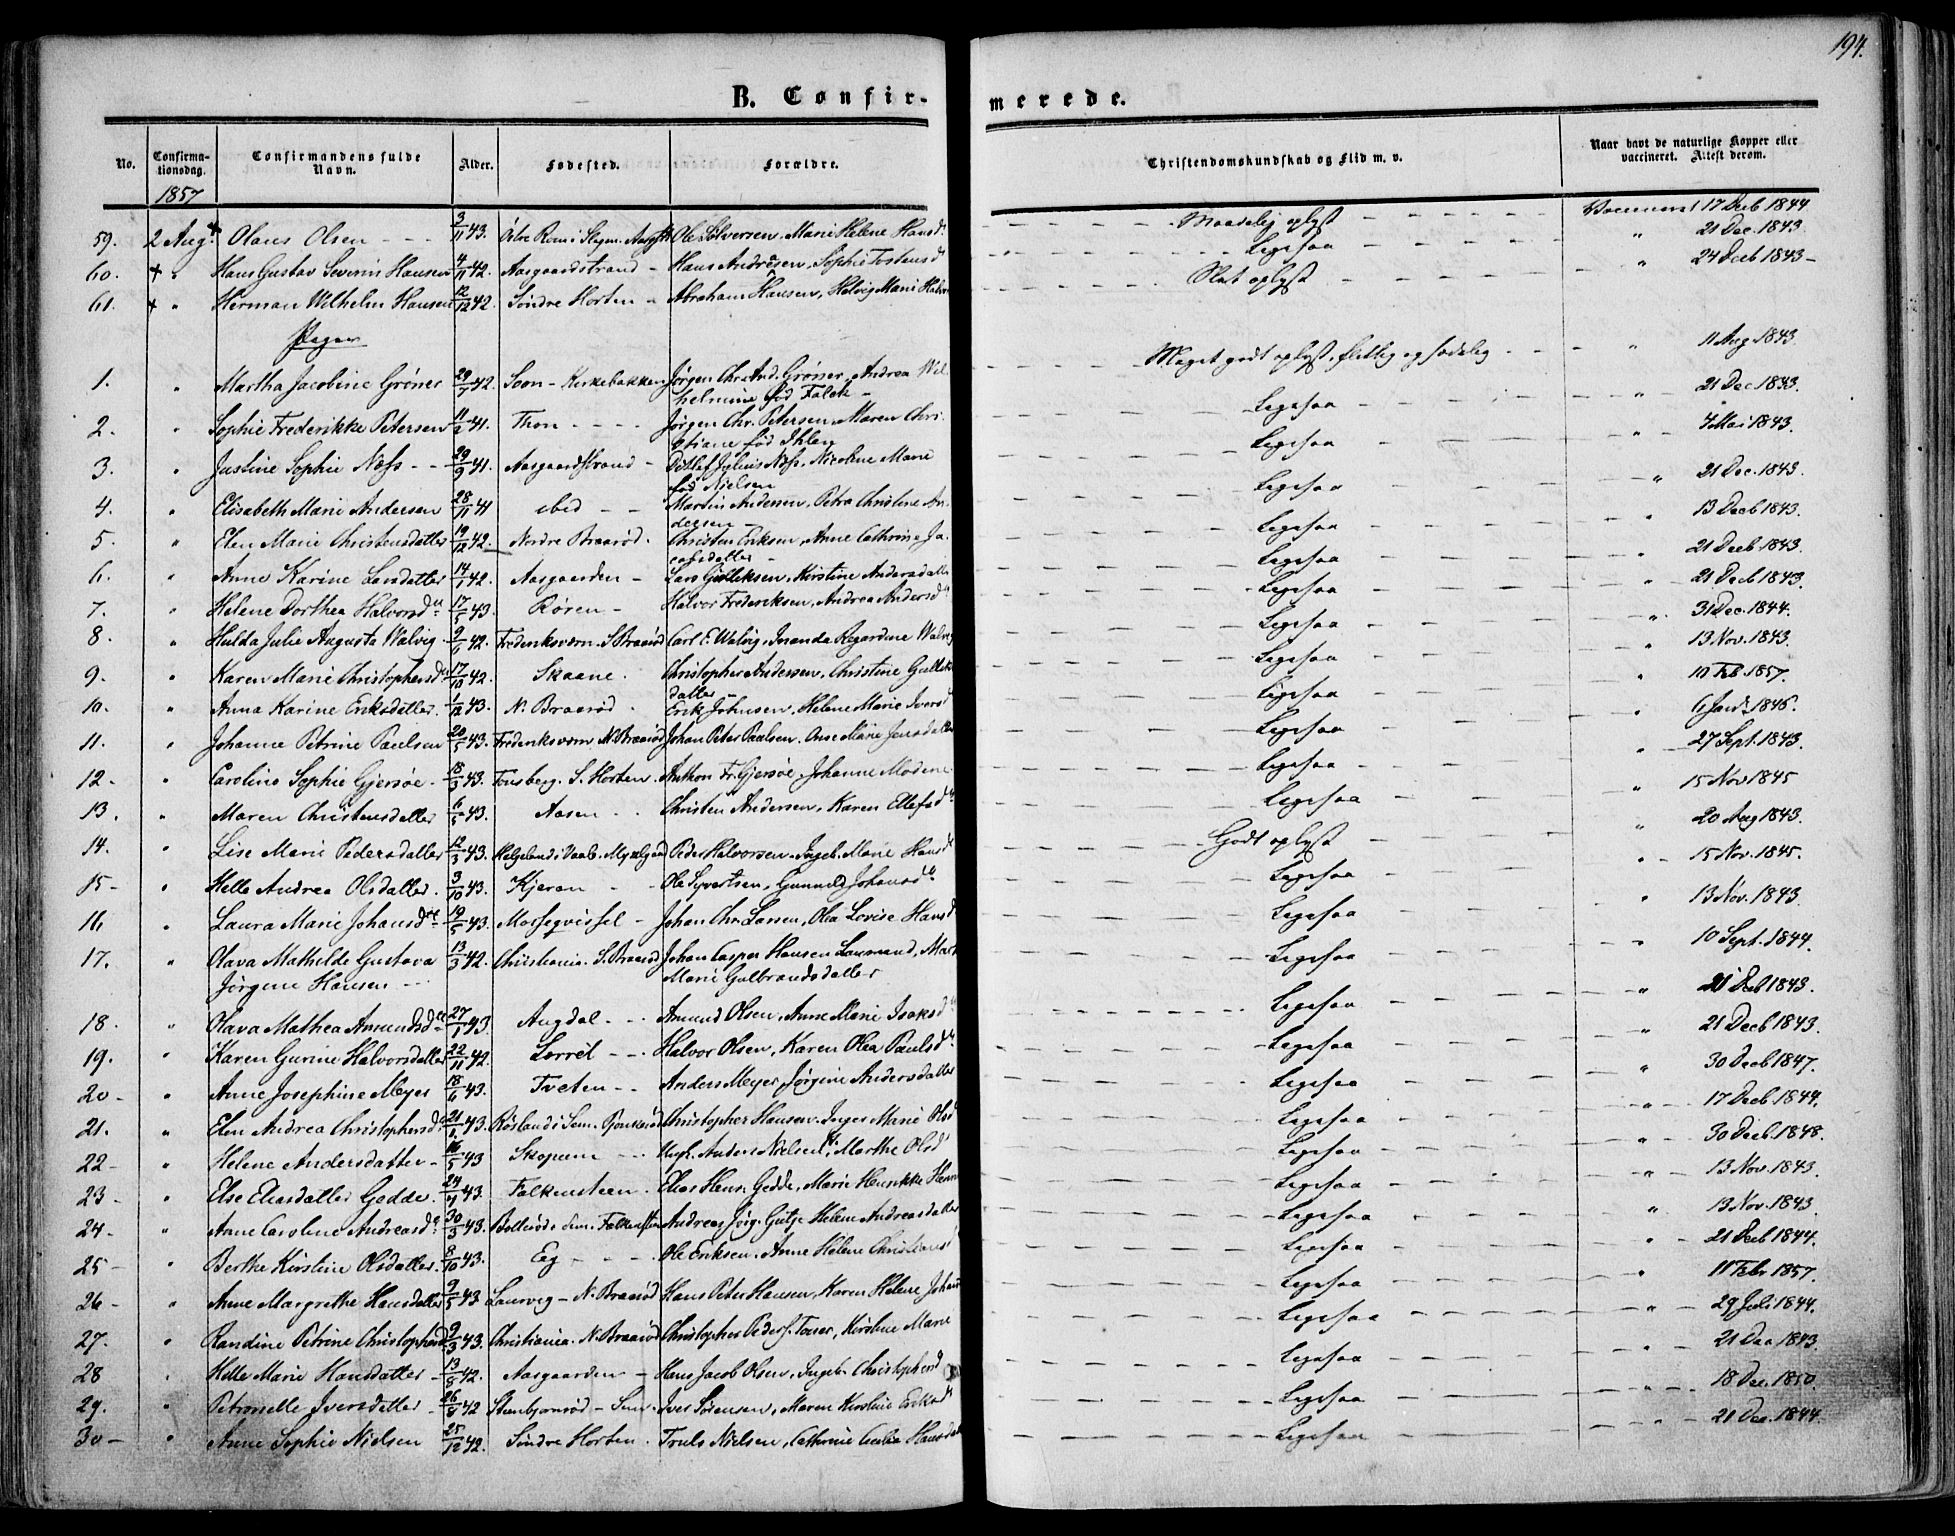 194.
B. Confirmerede.
No. Confirmationsdag. Confirmandens fulde Navn. Alder. Fødested. Forældre. Christendomskundskab og Flid m. v. Naar havt de naturlige Kopper eller vaccineret. Attest derom.
1857
59. 2 Aug. Olaus Olsen 3/11 43. Ole Sølversen, Marie Helene Hansd. Maadelig oplyst Vaccineret 17 Decb 1844
60. + " Hans Gustav Severin Hansen 4/11 42. Aasgaardstrand Hans Andresen, Sophie Tostensd Ligesaa " 21 Dec. 1843
61. + " Herman Wilhelm Hansen 12/12 42. Søndre Horten Abraham Hansen, Helvig Marie Halvor Slet oplyst " 24 Decb 1843
Piger
1. " Martha Jacobine Grøner 29/7 42. Soon - Kirkebakken Jørgen Chr. And. Grøner, Andrea Wilhelmine fød Falck Meget godt oplyst, flittig og sædelig " 11 Aug 1843
2. " Sophie Frederikke Petersen 11/2 41. Thon Jørgen Chr. Petersen, Maren Christiane fød Ihlen Ligesaa " 21 Dec 1843.
3. " Justine Sophie Næss 29/9 41. Aasgaardstrand Ditlef Julius Næss, Nicoline Marie fød Nielsen Ligesaa " 7 Mai 1843.
4. " Elisabeth Marie Andersen 28/11 41 ibid Martin Andersen, Petra Christine Andersen Ligesaa " 21 Dec. 1843.
5. " Elen Marie Christensdatter 19/12 42. Nordre Braarød. Christen Eriksen, Anne Cathrine Jacobsdatter Ligesaa " 13 Decb 1843.
6. " Anne Karine Larsdatter 14/1 42. Aasgaarden Lars Gulliksen, Kirstine Andersdatter Ligesaa " 21 Decb 1843.
7. " Helene Dorthea Halvorsd 17/5 43. Røren Halvor Frederiksen, Andrea Andersd Ligesaa " 21 Decb 1843.
8. " Hulda Julie Augusta Walvig 9/6 42. Frederiksværn. S. Braarød Carl E. Walvig, Regardine Walvig Ligesaa " 31 Dec. 1844.
9. " Karen Marie Christophersd 17/10 42. Skaane. Christopher Andersen, Christine Gulliksdatter Ligesaa " 13 Nov. 1843.
10. " Anna Karine Eriksdatter. 1/12 43. N. Braarød Erik Johnsen, Helene Marie Iversd Ligesaa " 10 Feb 1857.
11. " Johanne Petrine Paulsen 20/5 43. Frederiksværn N. Braarød Johan Peter Paulsen, Anne Marie Jensdatter Ligesaa " 6 Jan. 1846.
12. " Caroline Sophie Gjersøe 18/3 43. Tønsberg. S. Horten. Anthon Fr. Gjersøe, Johanne Modene Ligesaa " 27 Sept. 1843.
13. " Maren Christensdatter 6/5 43. Aasen Christen Andersen, Karen Ellefsd Ligesaa " 15 Nov 1845
14. " Lise Marie Pedersdatter 12/3 43. Peder Halvorsen, Ingeb. Marie Hansd Godt oplyst " 20 Aug 1843.
15. " Helle Andrea Olsdatter. 3/10 43. Kjæran Ole Syvertsen, Gunnild Johansd Ligesaa " 15 Nov. 1845.
16. " Laura Marie Johansd 19/5 43. Morseqvissel Johan Chr. Larsen, Olea Lovise Hansd Ligesaa " 13 Nov. 1843.
17. " Olava Mathilde Gustava Jørgine Hansen 13/3 42. Christiania. S. Braarød Johan Casper Hansen Lausmand, Mart Marie Gulbrandsdatter Ligesaa " 10 Sept. 1844.
18. " Olava Mathea Amundsd 27/1 43. Augdal Amund Olsen, Anne Marie Isaksd Ligesaa " 21 Decb 1843.
19. " Karen Gurine Halvorsdatter 22/11 42. Halvor Olsen, Karen Olea Paulsd Ligesaa " 21 Decb 1843.
20 " Anne Josephine Meyer 18/6 43. Tveten Anders Meyer, Jørgine Andersdatter Ligesaa " 30 Decb 1847.
21. " Elen Andrea Christophersd 21/1 43. Røsland i Sem. Christopher Hansen, Inger Marie Olsd Ligesaa " 17 Decb. 1844.
22 " Helene Andersdatter 16/5 43 Skopum Ungk. Anders Nielsen, Marthe Olsd Ligesaa " 30 Decb. 1848.
23 " Else Eliasdatter Gedde. 24/4 43. Falkensteen. Elias Hans. Gedde, Marie Henrikke Ligesaa " 13 Nov. 1843.
24 " Anne Caroline Andreasd 30/3 43. Sem. Falkensteen Andreas Jørg. Helene Andreasdatter Ligesaa " 13 Nov. 1843
25 " Berthe Kirstine Olsdatter. 8/10 43. Eeg Ole Eriksen. Anne Helene Christiansd Ligesaa " 21 Decb 1844.
26 " Anne Margrethe Hansdatter 9/5 43 Laurvig - N. Braarød Hans Peter Hansen, Karen Helene Johan Ligesaa " 11 Febr 1857.
27. " Randine Petrine Christophersd 9/3 43. Christiania. N. Braarød Christopher Peders. Kirstine Marie Ligesaa " 29 Juli 1844.
28 " Helle Marie Hansdatter 13/8 42. Aasgaarden Hans Jacob Olsen, Ingeb. Christophersd Ligesaa " 21 Dec 1843.
29. " Petronelle Iversdatter 26/8 42 Stenbjørnrød - Sem. Iver Sørensen, Maren Kirstine Eriksd Ligesaa " 18 Dec. 1850.
30 " Anne Sophie Nielsen 25/12 42. Søndre Horten. Truls Nielsen, Cathrine Cecilie Hansdat Ligesaa " 21 Dec. 1844.